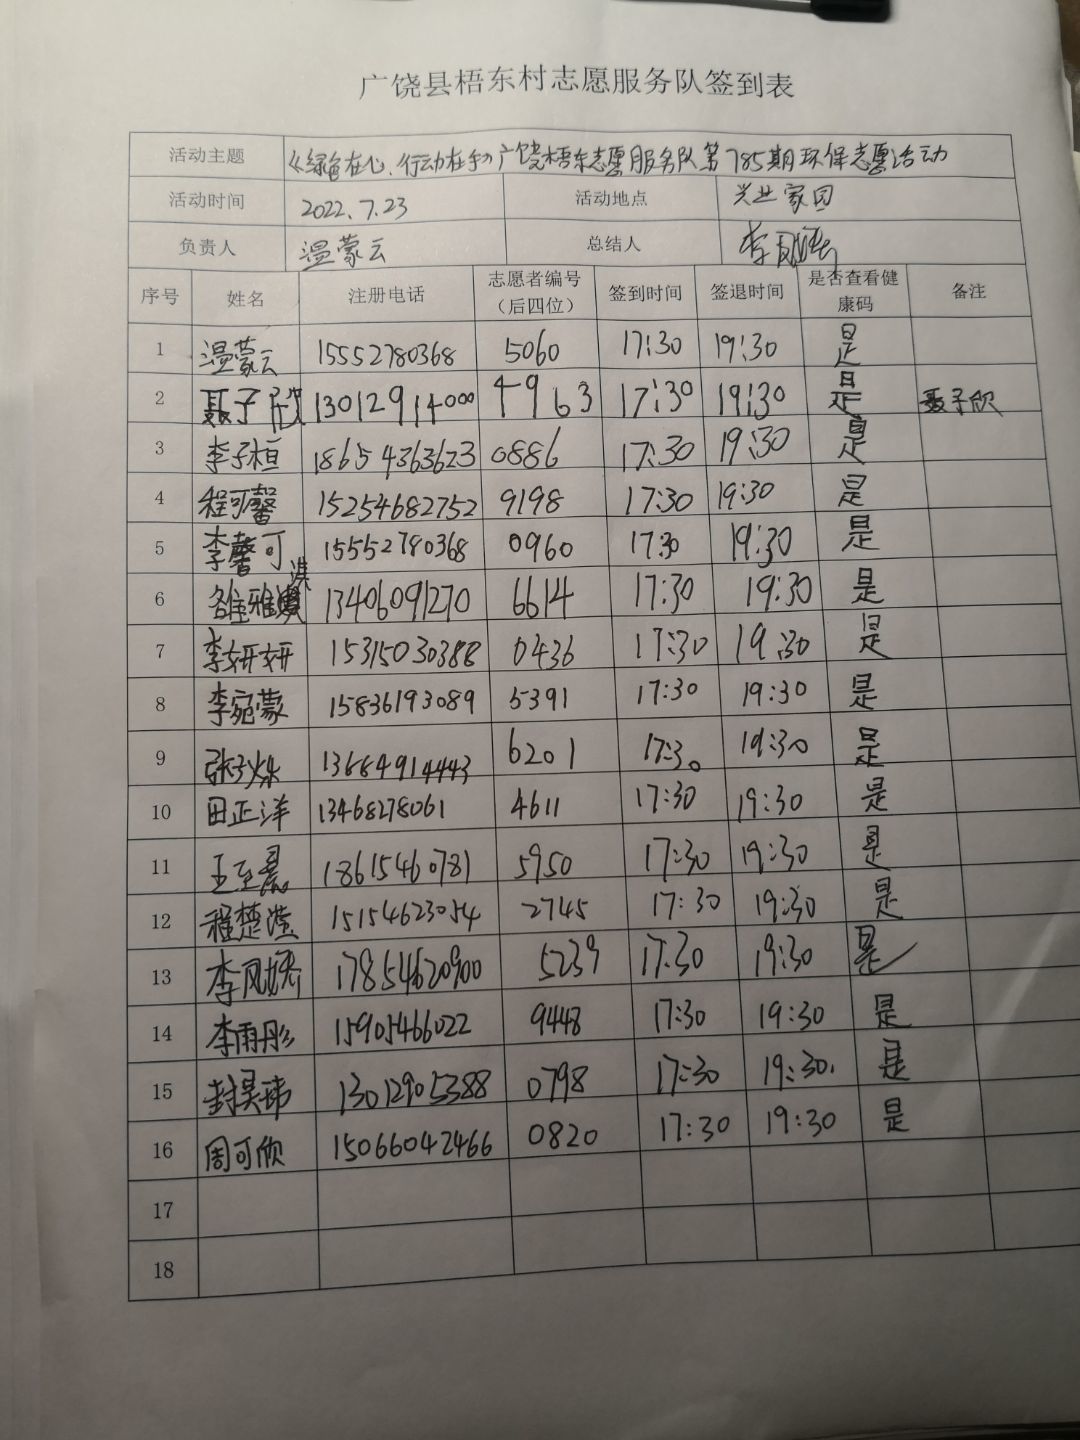 广饶县梧东村志愿服务队签到表
活动主题 《绿色在心、行动在手》广饶梧东志愿服务队第785期环保志愿活动
活动时间 2022.7.23 活动地点 兴业家园
负责人 温蒙云 总结人 李凤
序号 姓名 注册电话 志愿者编号（后四位） 签到时间 签退时间 是否查看健康码 备注
1 温蒙云 15552780368 5060 17:30 19:30 是
2 聂子欣 13012914000 4963 17:30 19:30 是 聂子欣
3 李子桓 18654363623 0886 17:30 19:30 是
4 程可馨 15254682752 9198 17:30 19:30 是
5 李馨可 15552780368 0960 17:30 19:30 是
6 雅淇 13406091270 6614 17:30 19:30 是
7 李妍妍 15315030388 0436 17:30 19:30 是
8 李宛蒙 15836193089 5391 17:30 19:30 是
9 张子烁 13684914443 6201 17:30 19:30 是
10 田正洋 13468278061 4611 17:30 19:30 是
11 王至 18615460781 5950 17:30 19:30 是
12 程楚滢 15154623054 2745 17:30 19:30 是
13 李凤 17854620900 5239 17:30 19:30 是
14 李雨彤 15905466022 9448 17:30 19:30 是
15 封昊玮 13012905388 0798 17:30 19:30. 是
16 周可欣 15066042466 0820 17:30 19:30 是
17
18